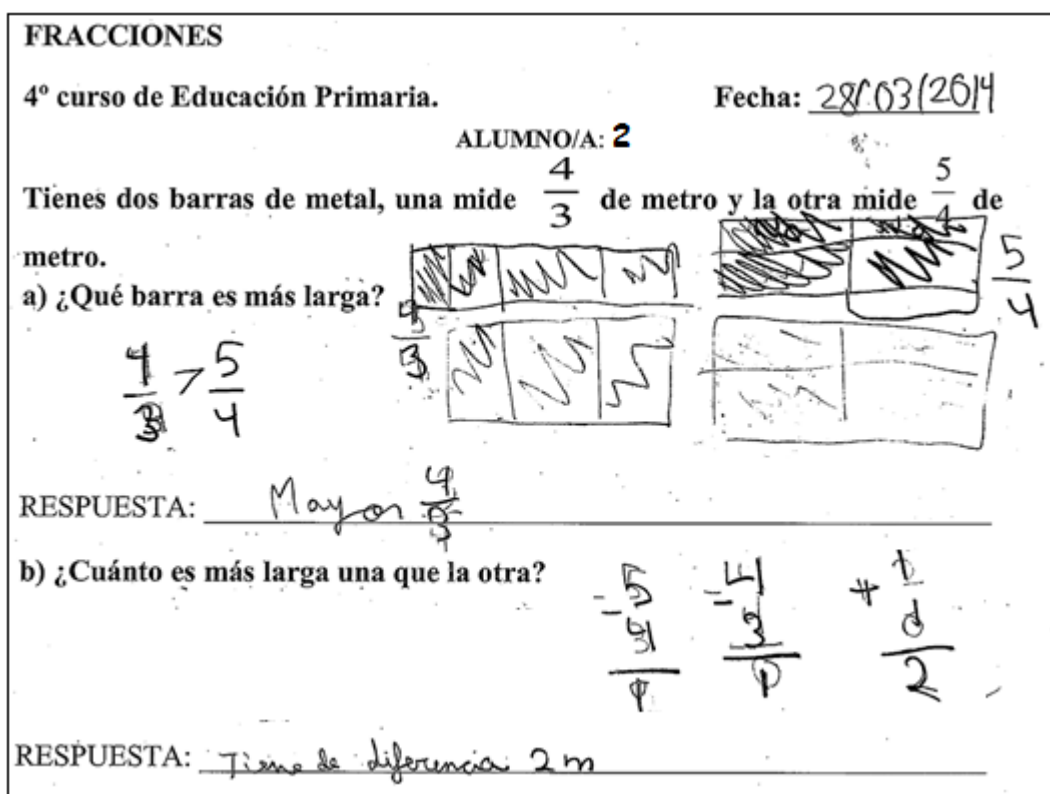 FRACCIONES
4º curso de Educación Primaria. Fecha: 28/03/2014
ALUMNO/A: 2
Tienes dos barras de metal, una mide 4/3 de metro y la otra mide 5/4 de
metro.
a) ¿Qué barra es más larga?
5/4
4/3 > 5/4
RESPUESTA: Mayor 4/3
b) ¿Cuánto es más larga una que la otra?
RESPUESTA: Tiene de diferencia 2 m